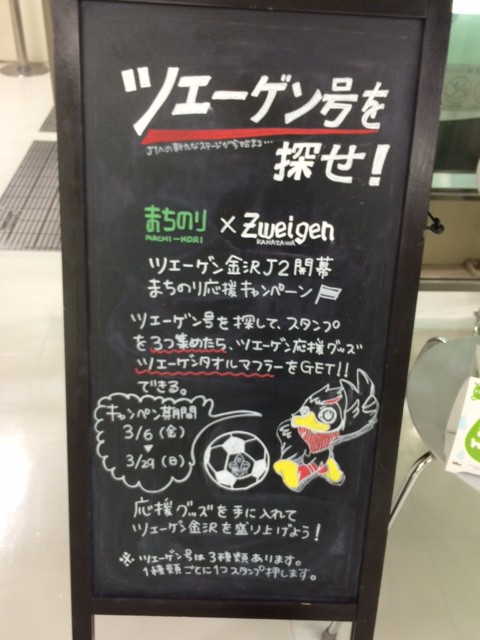 ツエーゲン号を
J1への新たなステージが今始まる…
探せ!
まちのり × Zweigen
MACHI-NORI KANAZAWA
ツエーゲン金沢J2開幕
まちのり応援キャンペーン
ツエーゲン号を探して、スタンプ
を3つ集めたら、ツエーゲン応援グッズ
ツエーゲンタオルマフラーをGET!!
できる。
キャンペン期間
3/6(金)
3/29(日)
応援グッズを手に入れて
ツエーゲン金沢を盛り上げよう!
※ツエーゲン号は3種類あります。
1種類ごとに1つスタンプ押します。